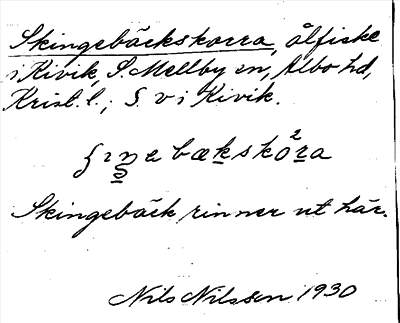 Skingebäckskorra, ålfiske
i Kivik, S. Mellby sn, Albo hd,
Krist. l.; S. v i Kivik.
Skingebäck rinner ut här.
Nils Nilsson 1930